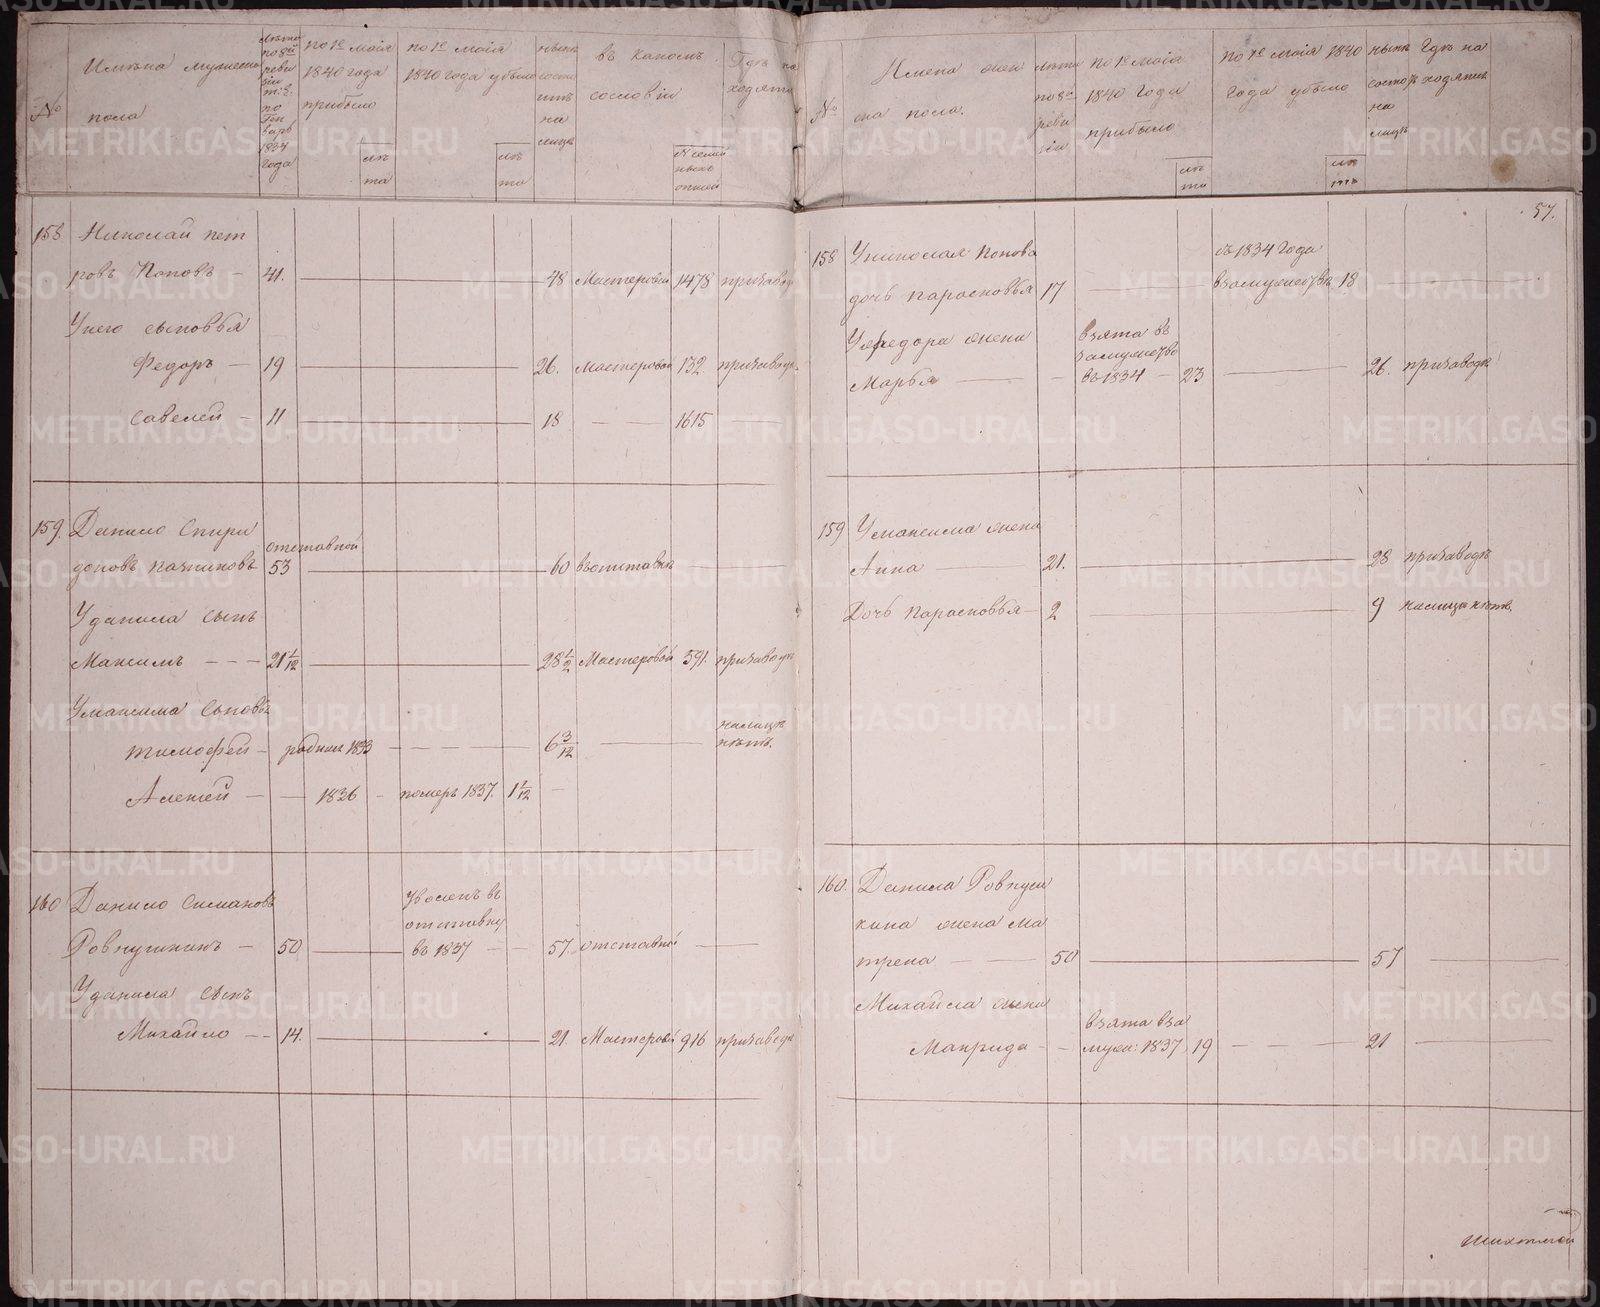 №
Имѣна мужеска
пола
Лѣта
по 8й
реви
зіи
т: е:
по
Ген
варь
1834
года
по 1е маія
1840 года
прибыло
лѣ
та
по 1е маія
1840 года убыло
лѣ
та
нынѣ
состо
итъ
на
лицѣ
въ какомъ
сословіи
№ семи
ныхъ
описей
Гдѣ на
ходятъ
153 Николай пет
ровъ Поповъ – 41. 48 Мастеровой 1478 призавод
У него сыновья
Федоръ – 19 26. Мастеровой 132 призаводѣ
Савелей – 11 18 1615
159. Данило Спири
отставной
доновъ Казанцовъ 53 60 въ отставкѣ
У данила сынъ
Максимъ 21 1/12 28 1/2 Мастеровой 591. призаводѣ
У максима сыновья
налицѣ
Тимофей – родился 1833 6 3/12 нѣтъ.
Алексей – 1836 – померъ 1837. 1 1/12
160 Данило Симановъ
уволенъ въ
отставку
Ровнушкинъ – 50 въ 1837 57. отставной
У данила сынъ
Михайло 14. 21. Мастеровой 916 призаводѣ
№
Имена жен
ска пола.
Лѣта
по 8й
реви
зіи
по 1е маія
1840 года
прибыло
лѣ
та
по 1е маія 1840
года убыло
лѣ
та
нынѣ
состоитъ
на
лицѣ
Гдѣ на
ходятся
57.
158 У николая Попова
съ 1834 года
дочь парасковья 17 взамужествѣ 18
У федора жена
взята въ
замужество
Марья въ 1834 – 23 26. призаводѣ
159 У максима жена
Анна 21. 28 призаводѣ
Дочь парасковья – 2 9 налицѣ нѣтъ.
160. Данила Ровнуш
кина жена ма
трена 50 57
Михайла жена
взята вза
Макрида муж: 1837 19 21